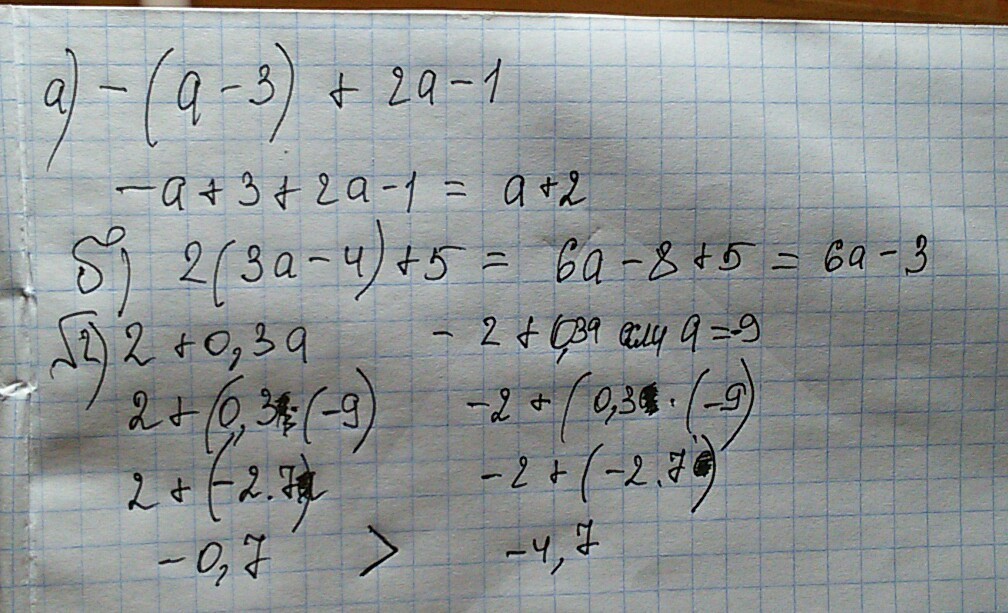 а) -(a-3) + 2a-1
-a+3+2a-1 = a+2
б) 2(3a-4)+5 = 6a-8+5 = 6a-3
√2) 2+0,3a -2+0,3a если a=-9
2+(0,3·(-9) -2+(0,3·(-9)
2+(-2.7) -2+(-2.7)
-0,7 > -4,7